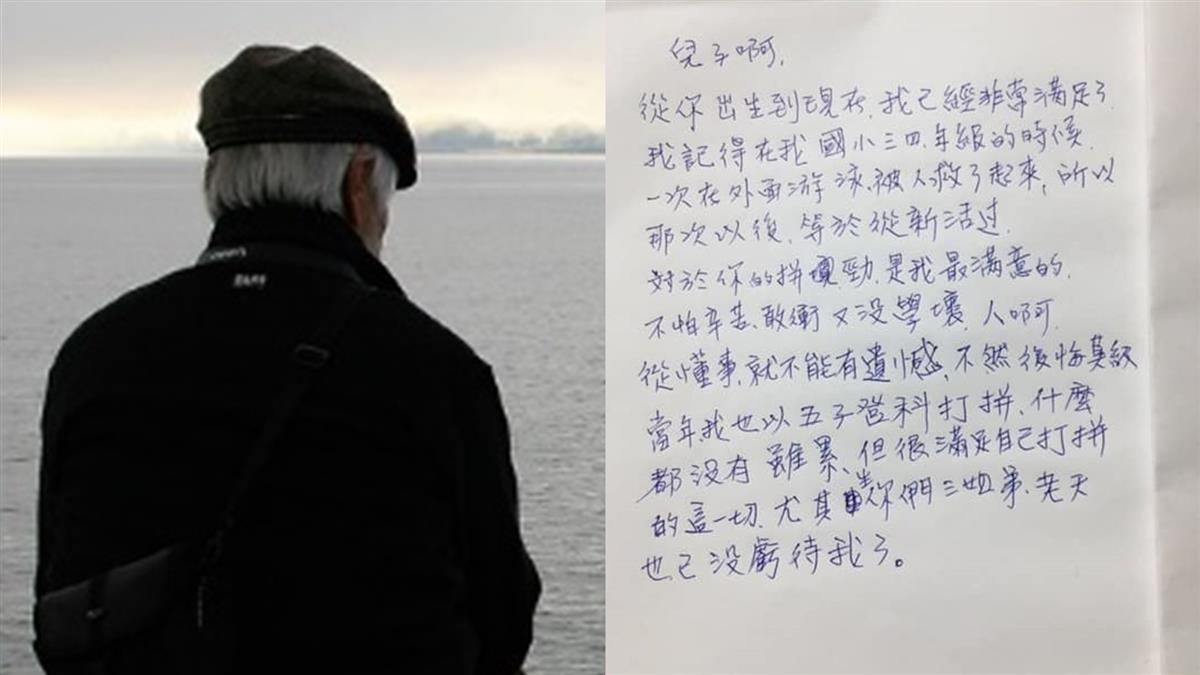 兒子啊,
從你出生到現在,我已經非常滿足了.
我記得在我國小三四年級的時候.
一次在外面游泳,被人救了起來,所以
那次以後,等於從新活过.
对於你的拼勁,是我最滿意的.
不怕辛苦、敢衝又没學壞.人啊.
從懂事,就不能有遺憾,不然後悔莫級
當年我也以五子登科打拼、什麼
都没有雖累、但很滿足自己打拼
的這一切.尤其生你們三姐弟.老天
也已没虧待我了。